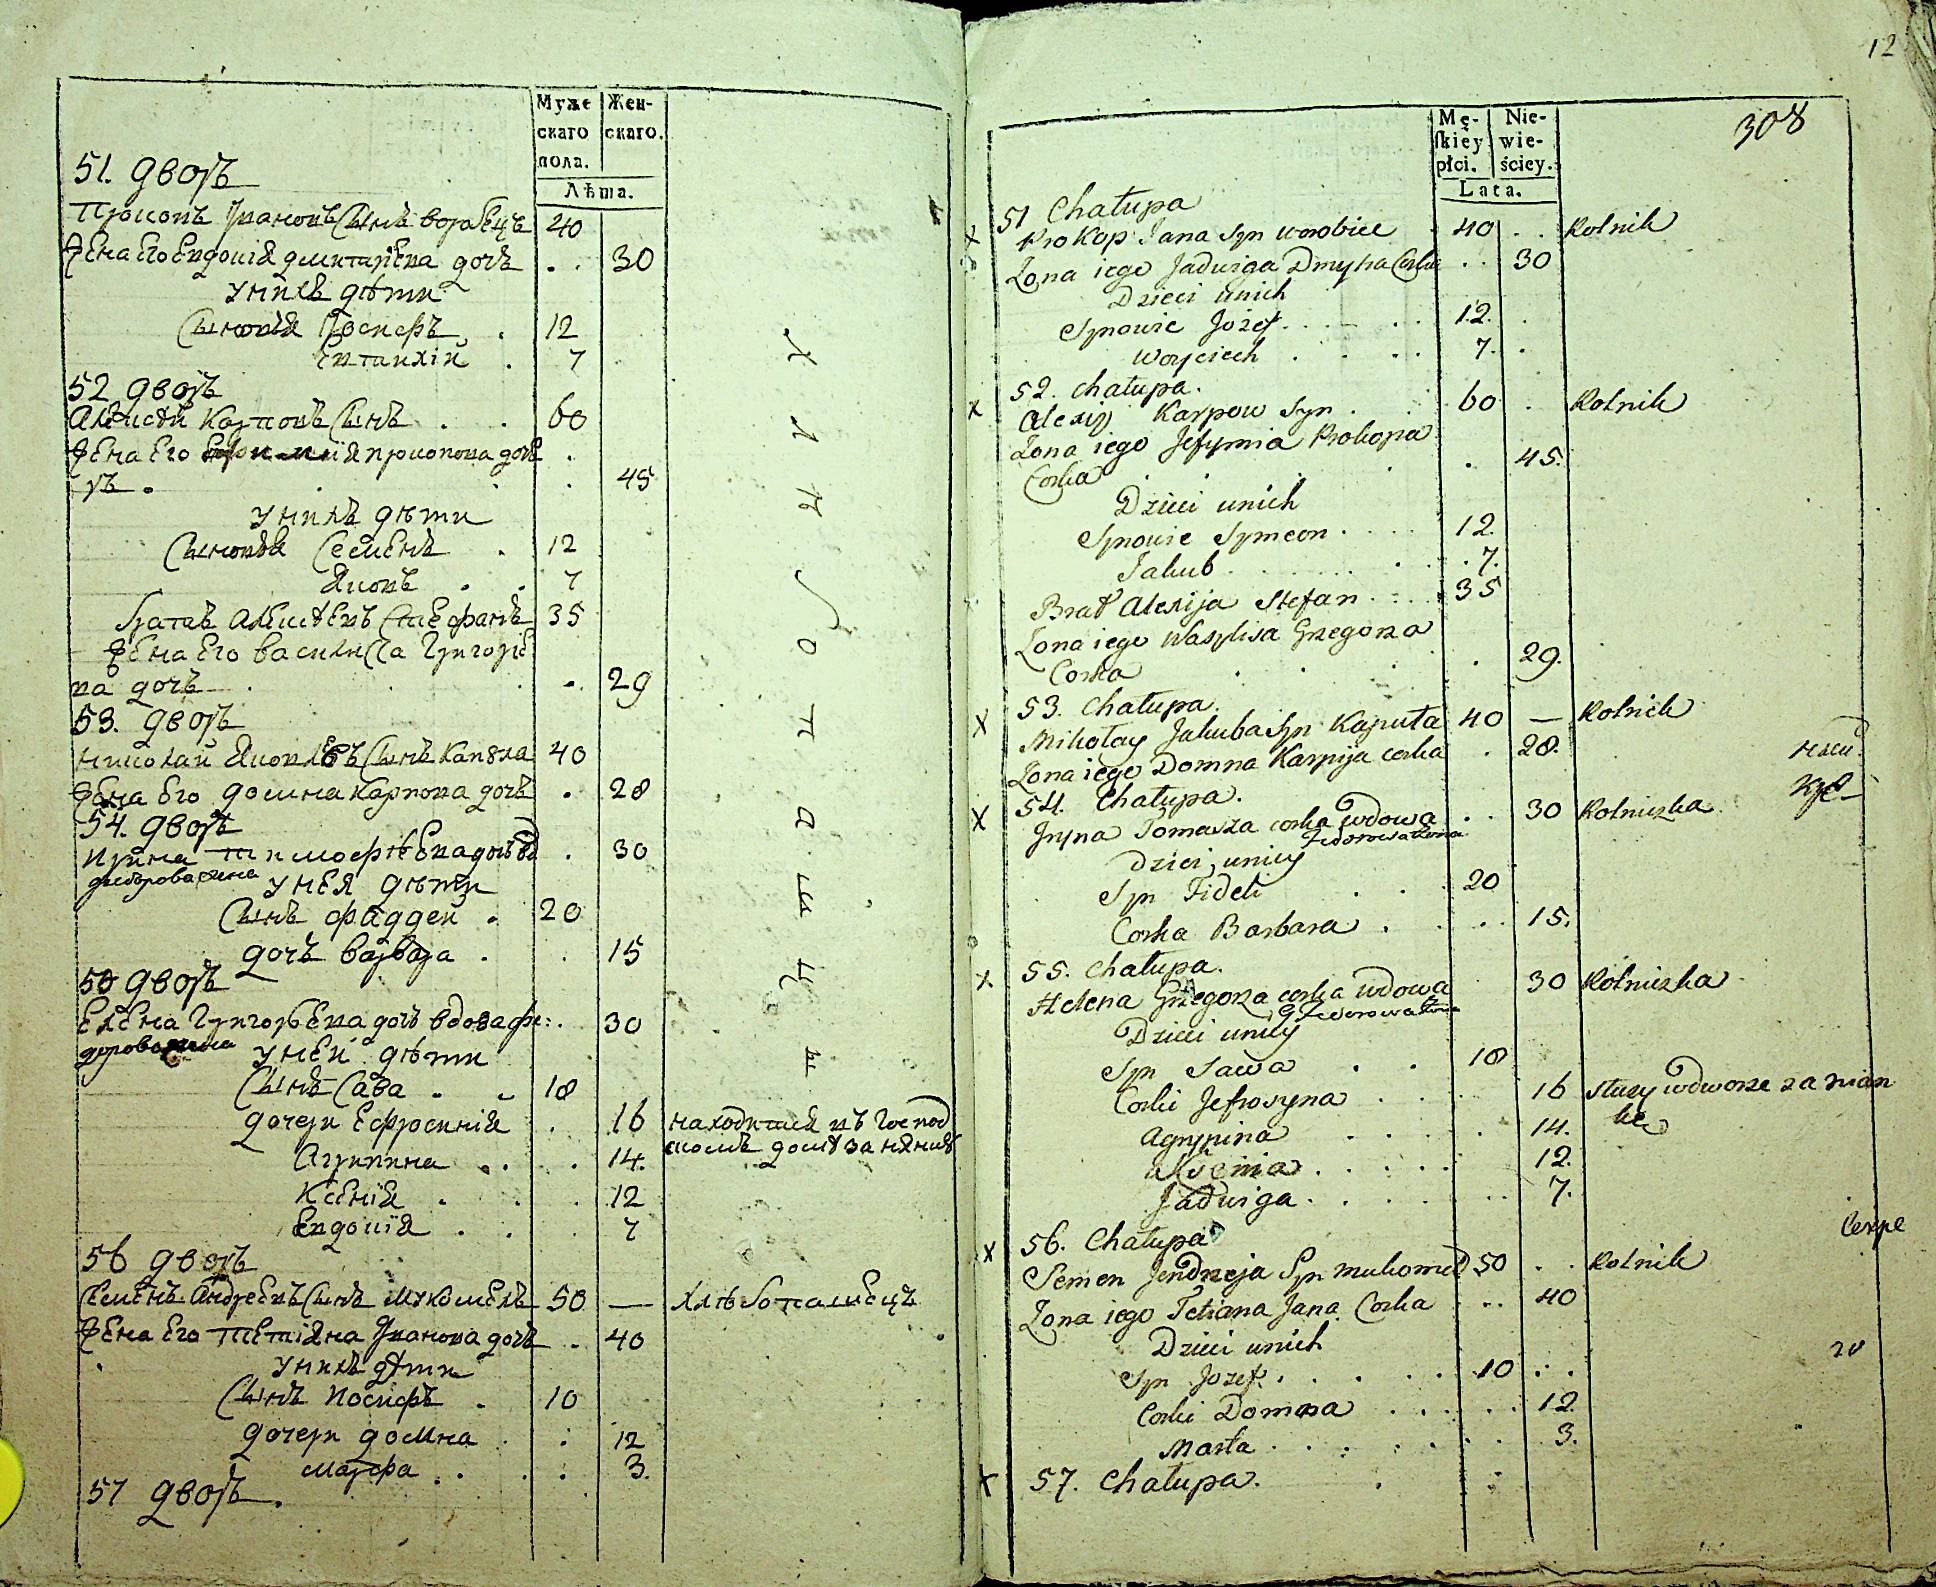 Муже
скаго
пола.
Жен-
скаго.
Лѣта.
51. дворъ
Прокопъ Ивановъ Сынъ воробецъ 40
Жена его Евдокія дмитрїева дочъ . . 30
у нихъ дѣти
Сыновья Іосифъ . 12
Евтихій . 7
52 дворъ
Алексѣй Карповъ Сынъ . . 60
Жена его прокопова доч
ръ . . . . 45
у нихъ дѣти
Сыновья Семенъ . 12
Яковъ . . 7
братъ Алексѣевъ Стефанъ 35
Жена его василиса Григорїе
ва дочъ . . . 29
53. дворъ
николай Яковлевъ Сынъ Капула 40
Жена его домна Карпова дочъ . 28
54. дворъ
Ирина тимофѣева дочъ вд . 30
у нея дѣти
Сынъ фаддей . 20
дочъ варвара . . 15
55 дворъ
Елена Григорьева дочъ вдова фе: . 30
у ней дѣти
Сынъ Сава . . 18
дочери Ефросинія . 16 находится въ Господ
скомъ домѣ за няньку
Агрипина . . . 14.
Ксенїя . . . 12
Евдокїя . . . 7
56 дворъ
Семенъ Андреевъ Сынъ Мукомелъ 50 — хлѣбопашецъ
Жена его тетіяна Иванова дочъ . 40
у нихъ дѣти
Сынъ Иосифъ . 10
дочери домна . . 12
марфа . . . . 3.
57 дворъ.
хлѣбопашцы
12
308
Mę-
ſkiéy
płci.
Nie-
wie-
ściey.
Lata.
51 Chałupa
x Prokop Jana Syn worobiec . 40 . . Rolnik
Zona iego Jadwiga Dmytra Corka . . 30
Dzieci unich
Synowie Jozef . . . . . 12. .
Woyciech . . . . 7. .
52. chałupa.
x Alexij Karpow Syn . . 60 . Rolnik
Zona iego Jefymia Prokopa
Corka . . . . 45.
Dzieci unich
Synowie Symeon . . . . 12.
Jakub . . . . . 7.
Brat Alexija Stefan . . . . 35
Zona iego Wasylisa Grzegorza
Corka . . . . 29.
53. Chałupa.
x Mikołay Jakuba Syn Kapuła 40 — Rolnik
Zona iego Domna Karpija corka . 28.
54. Chałupa.
x Jryna Tomasza corka wdowa . . 30 Rolniczka
Fedorowa Zona
Dzieci uniey
Syn Fideli . . . 20
Corka Barbara . . . . 15.
55. Chałupa.
x Helena Grzegorza corka wdowa 30 Rolniczka
Fedorowa Zona
Dzieci uniey
Syn Sawa . . 18
Corki Jefrosyna . . . . 16 słuzy wdworze za nian
ke
Agrypina . . . . 14.
Ksenia . . . . . 12.
Jadwiga . . . . . 7.
56. Chałupa
x Semen Jendrzeja Syn mukomeł 50 . . Rolnik
Zona iego Tetiana Jana Corka . . . 40
Dzieci unich
Syn Jozef . . . . . 10 . .
Corki Domna . . . . . 12.
Marta . . . . . . 3.
x 57. Chałupa.